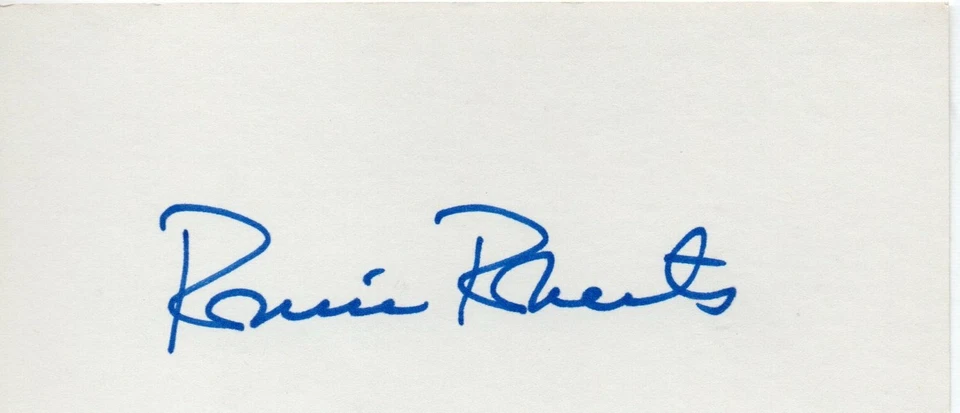 Ronnie Roberts